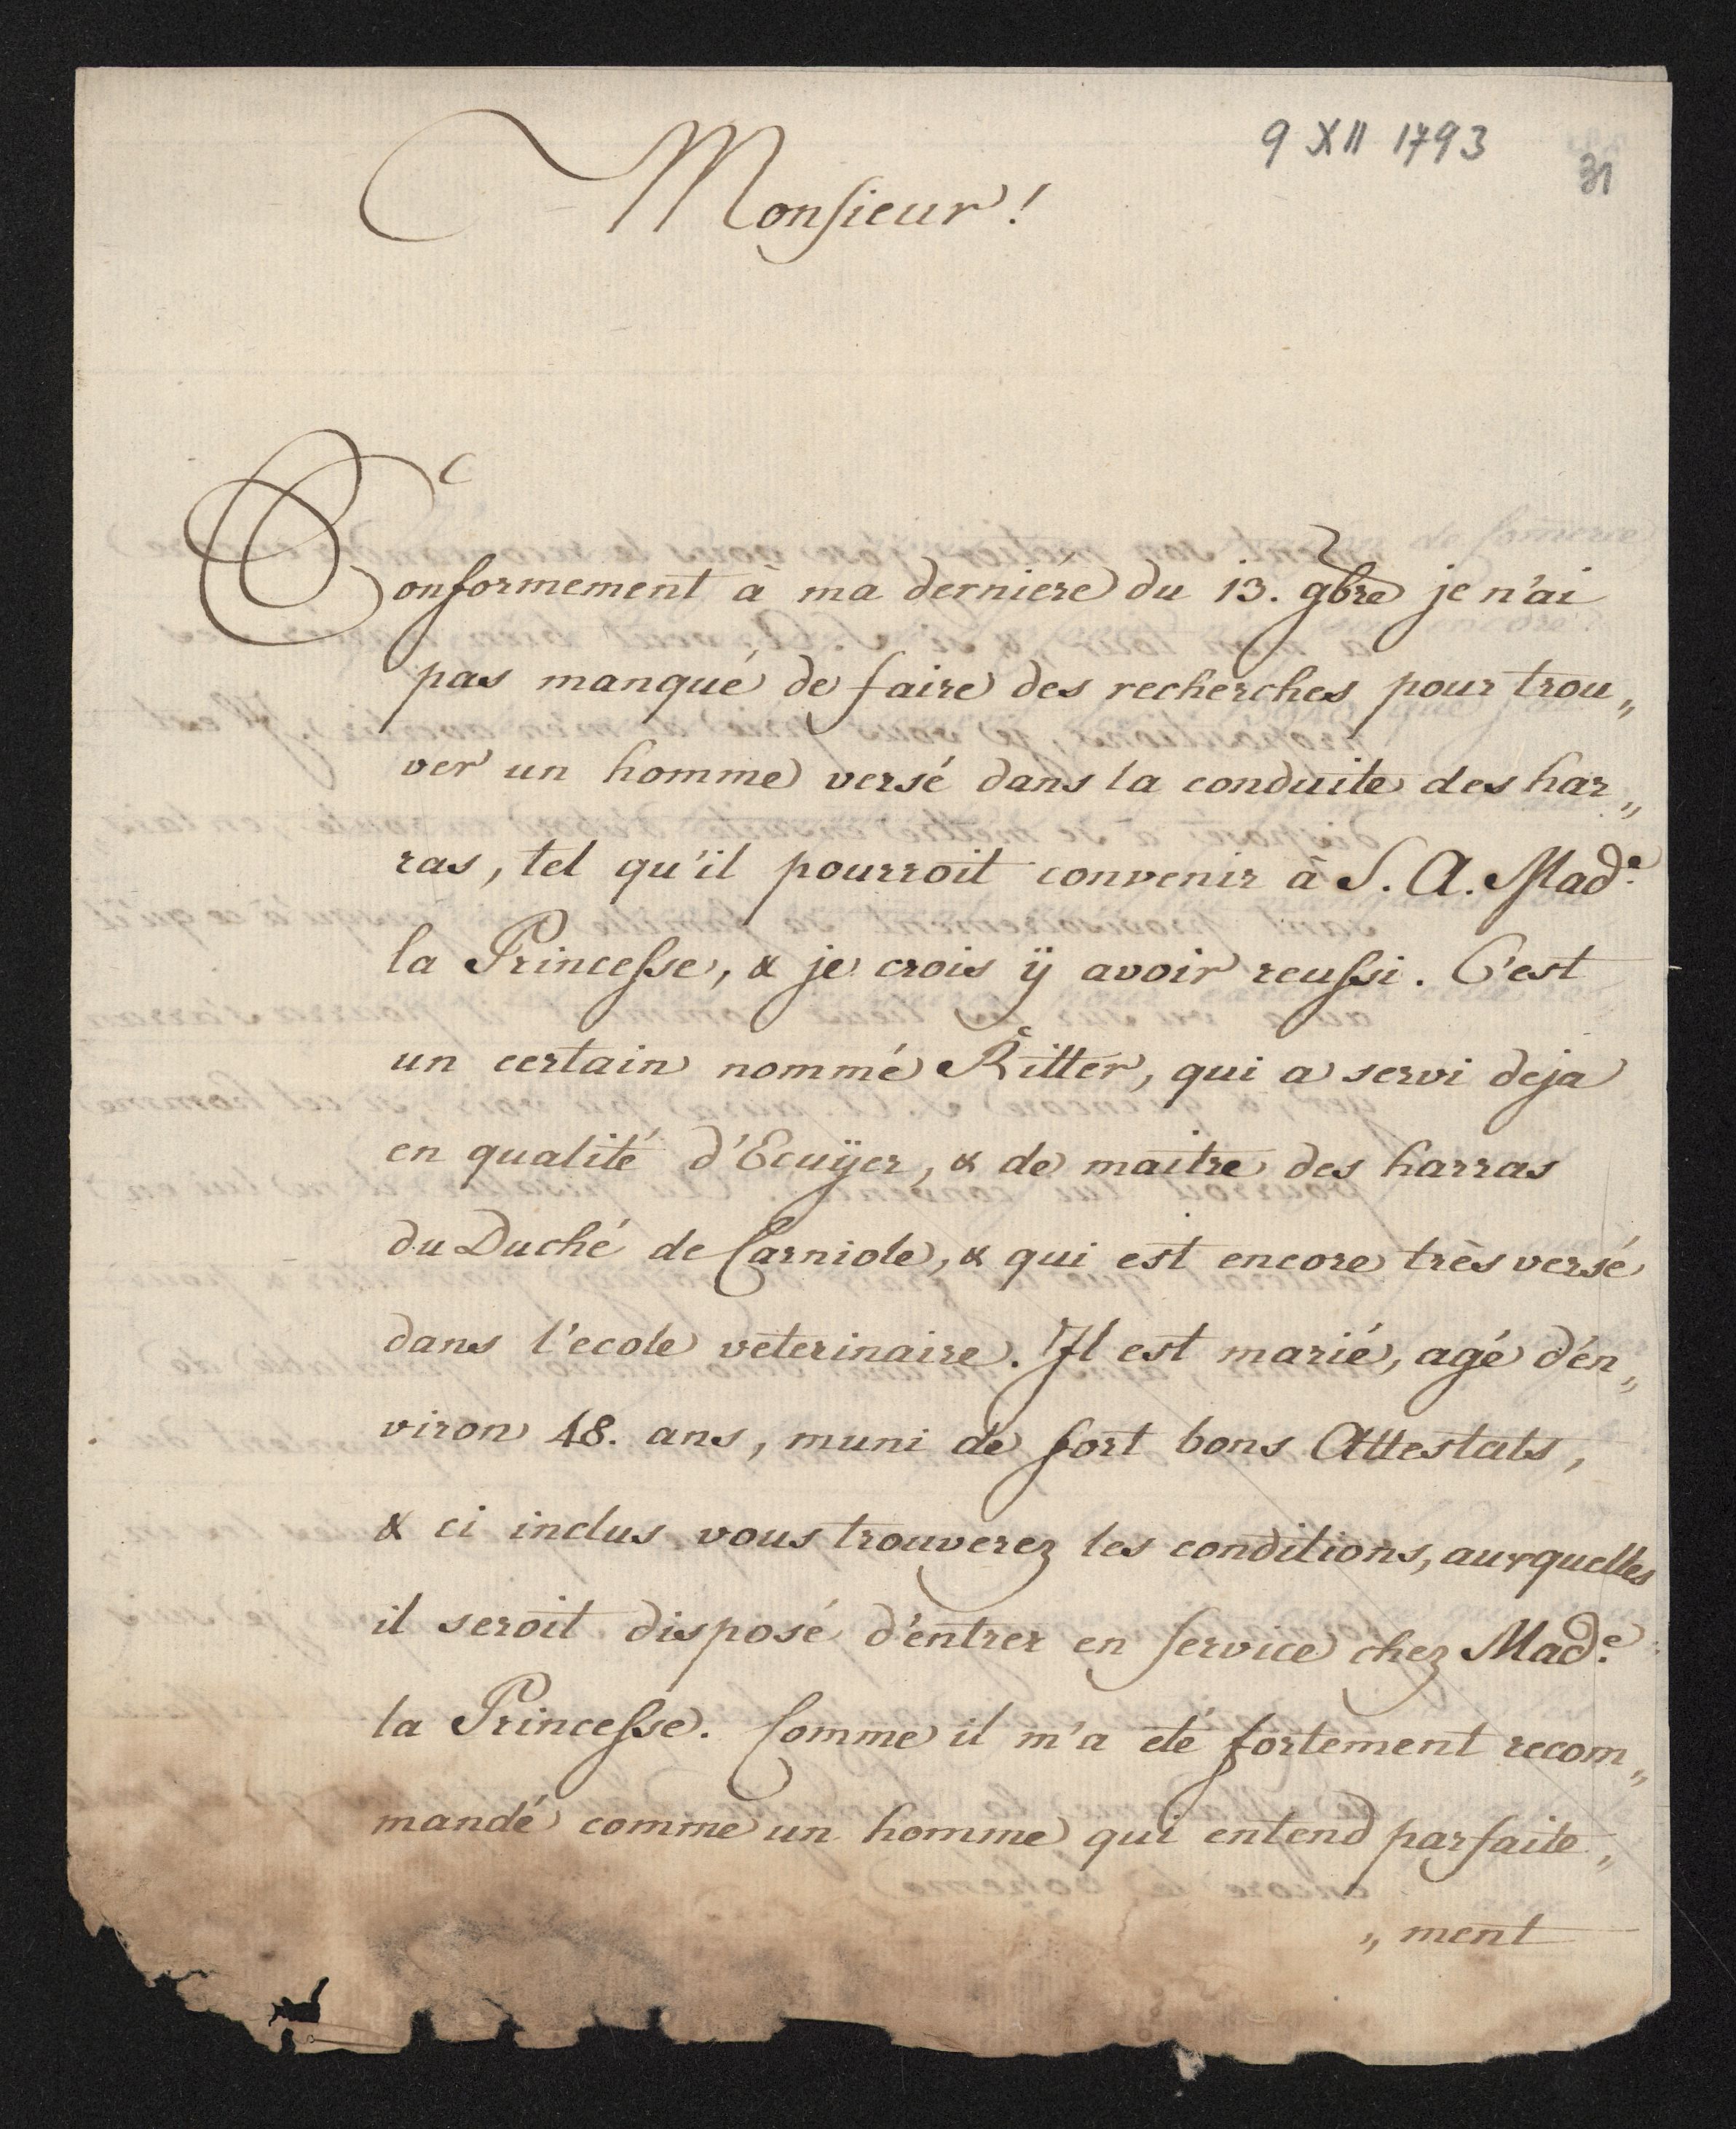 9 XII 1793
31
Monsieur!
Conformement à ma derniere du 13. 9bre je n'ai
pas manqué de faire des recherches pour trou„
ver un homme versé dans la conduite des har„
ras, tel qu'il pourroit convenir à S. A. Mad.e
la Princesse, & je crois ÿ avoir reussi. C'est
un certain nommé Ritter, qui a servi deja
en qualité d'Ecuÿer, & de maitre des harras
du Duché de Carniole, & qui est encore très versé
dans l'ecole veterinaire. Il est marié, agé d'én„
viron 48. ans, muni de fort bons Attestats,
& ci inclus vous trouverez les conditions, auxquelles
il seroit disposé d'entrer en service chez Mad.e
la Princesse. Comme il m'a eté fortement recom„
mandé comme un homme qui entend parfaite„
„ment